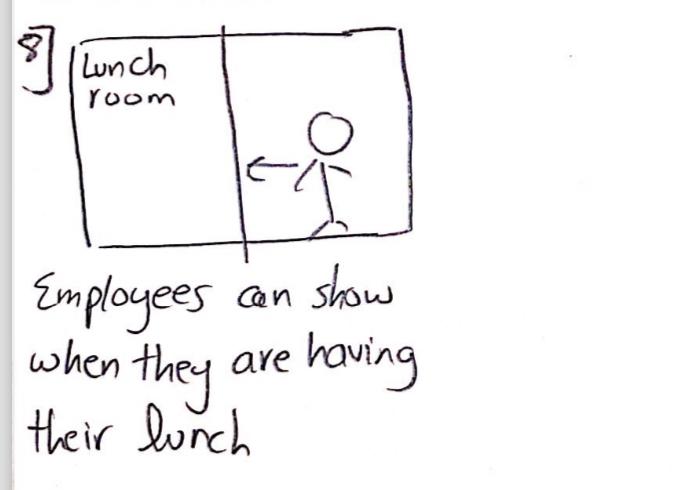 8]
Lunch
room
Employees can show
when they are having
their lunch